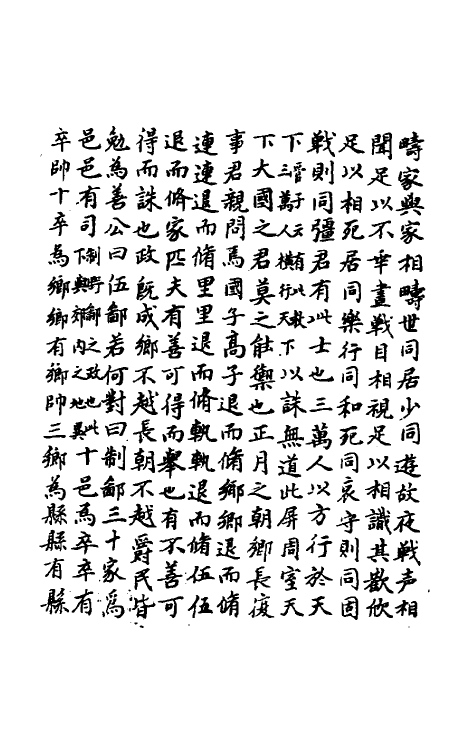 疇家與家相疇世同居少同遊故夜戰声相
聞足以不乖晝戰目相視足以相識其歡欣
足以相死居同樂行同和死同哀守則同固
戰則同彊君有此士也三萬人以方行於天
下三萬人天下横行以誅無道此屏周室天
下大國之君莫之能禦也正月之朝鄉長復
事君親問焉國子高子退而脩鄉鄉退而脩
連連退而脩里里退而脩軌軌退而脩伍伍
退而脩家匹夫有善可得而舉也有不善可
得而誅也政既成鄉不越長朝不越爵民皆
勉為善公曰伍鄙若何對曰制鄙三十家爲
邑邑有司制野鄙之政也此下與郊内之地異十邑爲卒卒有
卒帥十卒爲鄉鄉有鄉帥三鄉為縣縣有縣